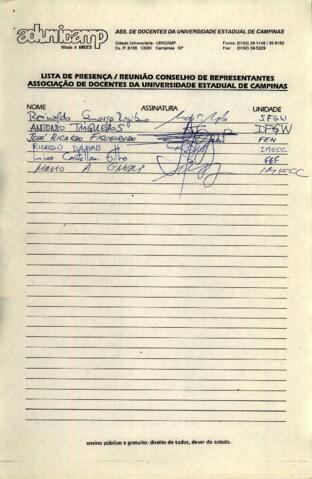 adunicamp
filiada à ANDES
ASS. DE DOCENTES DA UNIVERSIDADE ESTADUAL DE CAMPINAS
Cidade Universitária - UNICAMP
Cx. P. 6158 13081 Campinas SP
Fones: (0192) 39-1148 / 39-8152
Fax: (0192) 39-5229
LISTA DE PRESENÇA / REUNIÃO CONSELHO DE REPRESENTANTES
ASSOCIAÇÃO DE DOCENTES DA UNIVERSIDADE ESTADUAL DE CAMPINAS
NOME ASSINATURA UNIDADE
Reinaldo IFGW
ANTONIO IFGW
JOSÉ RICARDO FIGUEIREDO FEM
RICARDO DAHAB IMECC
Lino Castellani Filho FEF
MARIO A. IMECC
ensino público e gratuito: direito de todos, dever do estado.